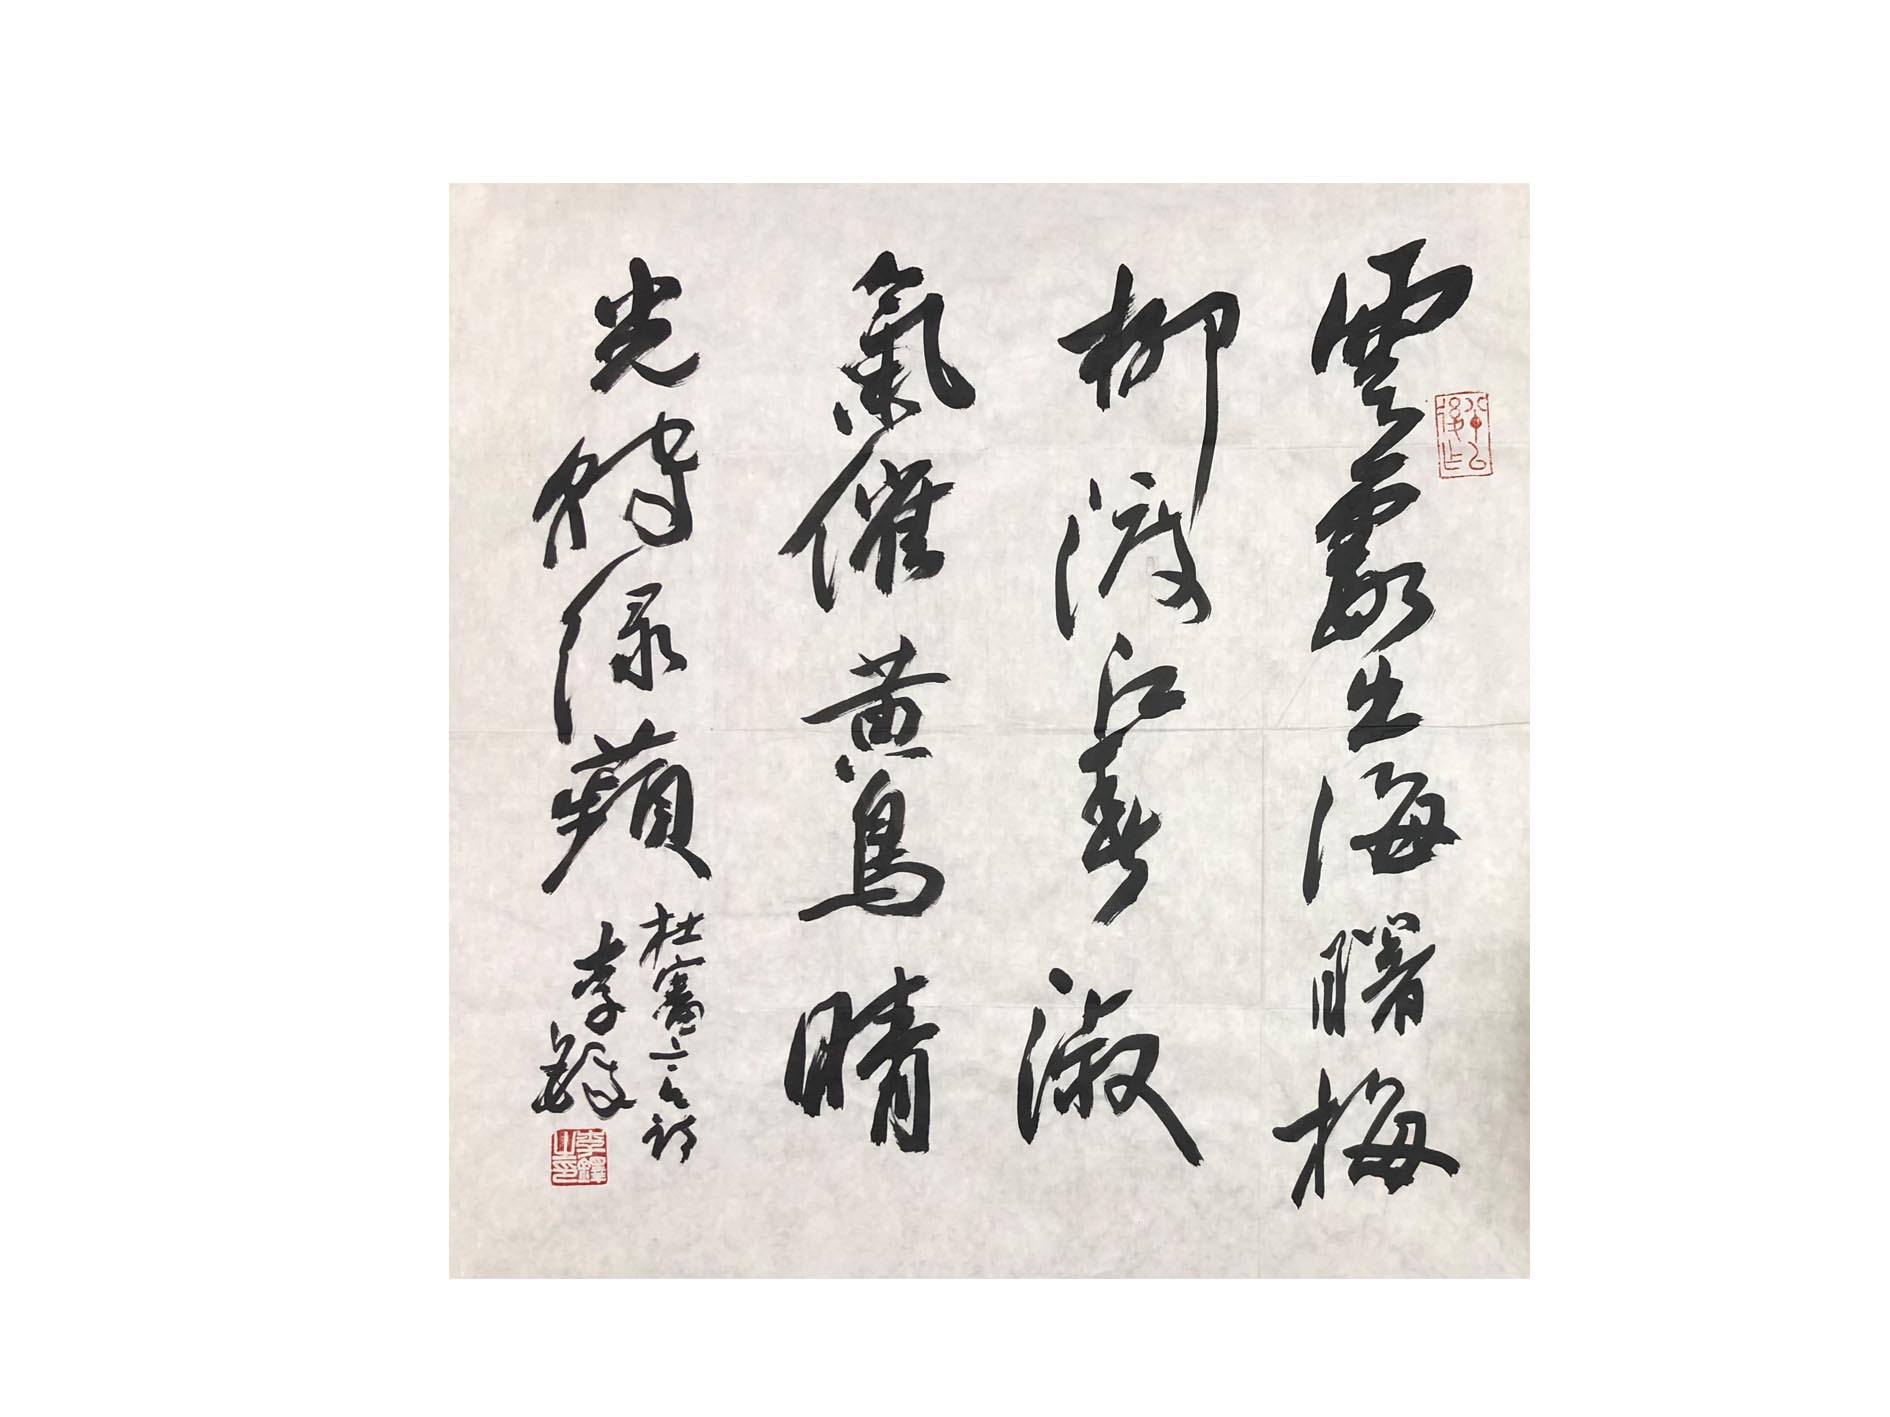 雲霞出海曙梅
柳渡江春淑
氣催黄鳥晴
光轉綠蘋
杜審言詩
李鐸
李鐸之印